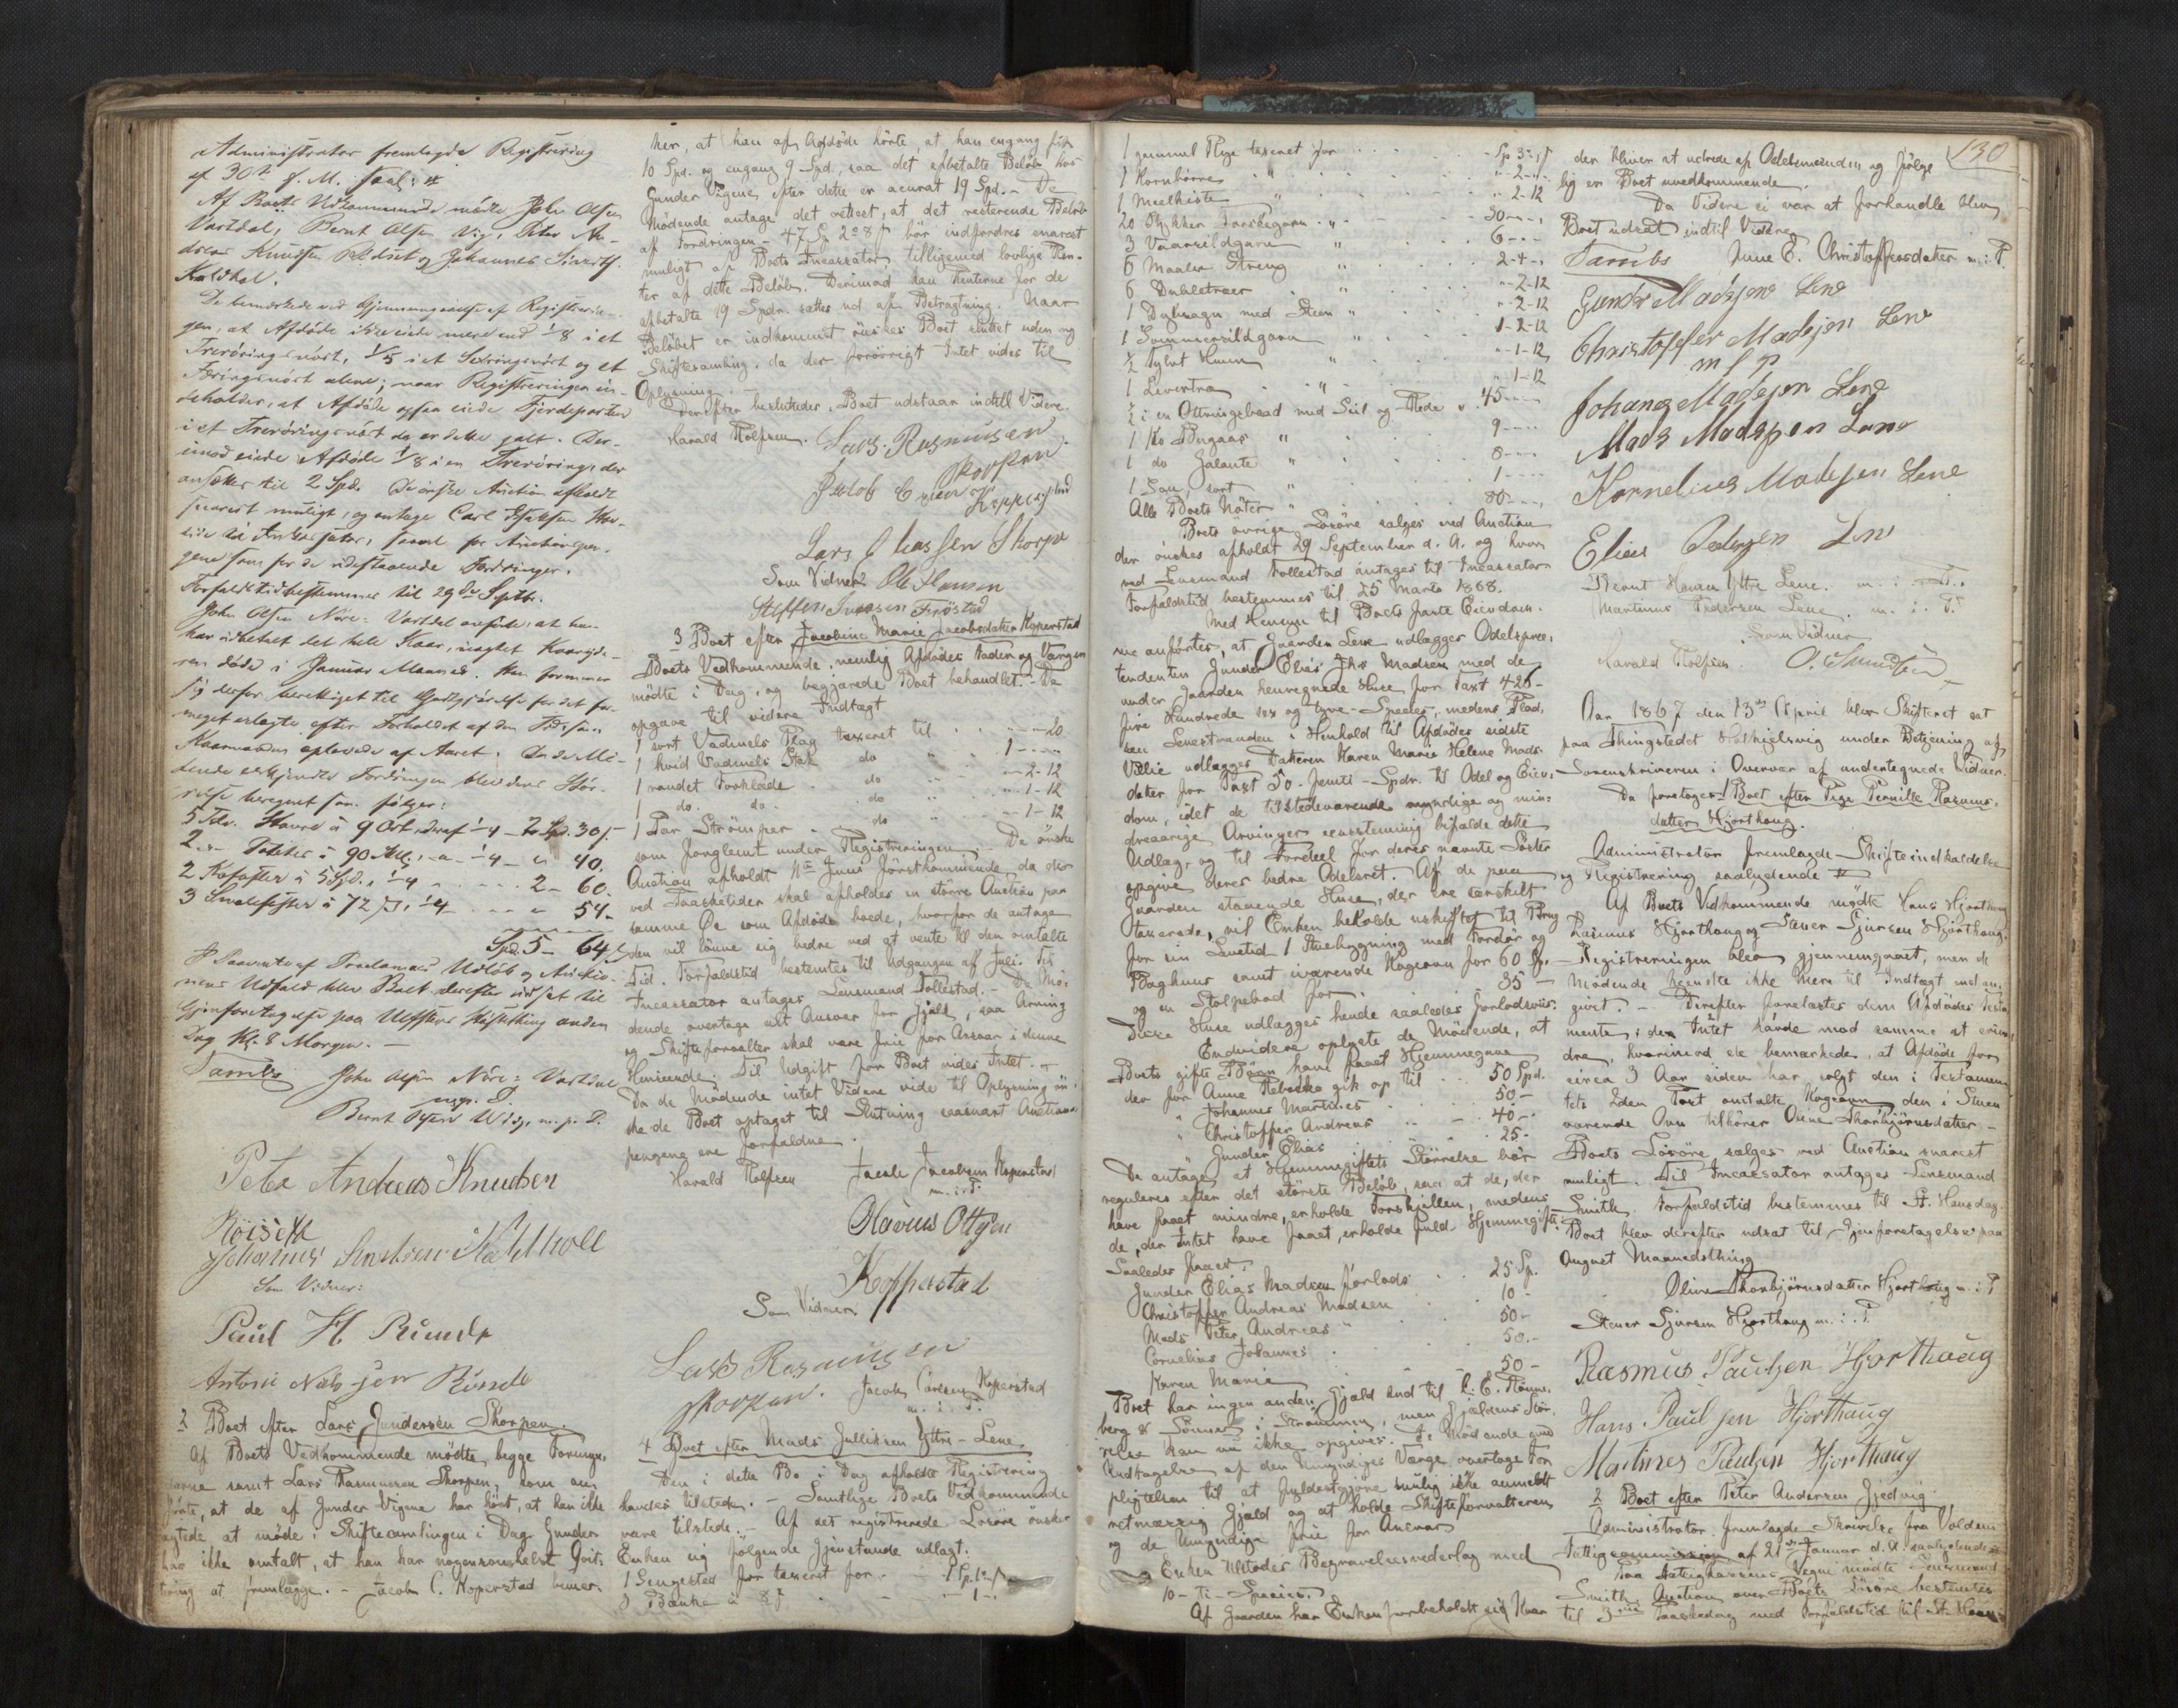 Administrator fremlagde Registrering
af 30te f. M. saal:
Af Boets Vedkommende mødte John Olsen
Vartdal, Bernt Olsen Vig, Peter An-
dreas Knudsen Røiset og Johannes Sivertsen
Kaldhol.
De bemærkede ved Gjennemgaaelse af Registrerin-
gen, at Afdøde ikke eiede mere end 1/8 i et
Trerøringsnøst, 1/5 i et Sexringsnøst og et
Færingsnøst alene; naar Registreringen in-
deholder, at Afdøde ogsaa eiede Fjerdeparten
i et Trerøringsnøst da er dette galt. Der-
imod eiede Afdøde 1/8 i en Trerøring, der
ansættes til 2 Spd. De ønske Auction afholdt
snarest muligt, og antage Carl
til Incassator, saavel for Auctionspen-
gene som for de udestaaende Fordringer.
Forfaldstid bestemmes til 29de Septbr.
John Olsen Nøre-Vartdal anførte, at han
har udbetalt det hele Kaar, uagtet Kaaryde-
ren døde i Januar Maaned. Han formener
sig derfor berettiget til Godtgjørelse for det for-
meget erlagte efter Forholdet af den Tid, som
Kaarmanden oplevede af Aaret. Da de Mø-
dende erkjendte Fordringen blev dens Stør-
relse beregnet som følger:
5 Tdr. Havre à 9 Ort, deraf 1/4 - 2 Spd. 30 s.
2 - Poteter à 90 s., - 1/4 - " 40.
2 Kofoster à 5 Spd., 1/4 - - - 2 - 60.
3 Smalefoster à 72 s, 1/4 - - - " 54.
Spd. 5 - 64 s
I Paavente af Proclamas Udløb og Auctio-
nens Udfald blev Boet derefter udsat til
Gjenforetagelse paa Ulfstens Høstthing anden
Dag Kl. 8 Morgen. -
Tambs John Olsen Nøre-Vartdal
m. p. P.
Bernt Olsen Wiig, m. p. P.
Peter Andreas Knudsen
Røiseth
Johannes Sivertsen Kaldholl
Som Vidner:
Paul H Runde
Antoni Nilsjen Runde
2 Boet efter Lars Gundersen Skorpen.
Af Boets Vedkommende mødte begge Formyn-
derne samt Lars Rasmussen Skorpen, som an-
førte, at de af Gunder Vigene har hørt, at han ikke
agtede at møde i Skiftesamlingen i Dag. Gunder
har ikke omtalt, at han har nogensomhelst Qvit-
tering at fremlægge. - Jacob C. Koperstad bemær-
ker, at han af Afdøde hørte, at han engang fik
10 Spd. og engang 9 Spd., saa det afbetalte Beløb hos
Gunder Vigene efter dette er acurat 19 Spd. - De
Mødende antage det rettest, at det resterende Beløb
af Fordringen - 47 Sp 2 o 8 s bør indfordres snarest
muligt af Boets Incassator, tilligemed lovlige Ren-
ter af dette Beløb. Derimod kan Renterne for de
afbetalte 19 Spdr. sættes ud af Betragtning. Naar
Beløbet er indkommet ønskes Boet sluttet uden ny
Skiftesamling, da der forøvrigt Intet vides til
Oplysning. -
Derefter besluttedes: Boet udstaar indtil Videre.
Harald Rolfsen. Lars. Rasmusen
Skorpen
Jakob Carlsen Kopperstad
Lars Eliassen Skorpe
Som Vidner Ole Hansen
Steffen Iversen Frøstad
3 Boet efter Jacobine Marie Jacobsdatter Koperstad
Boets Vedkommende, nemlig Afdødes Fader og Værgen
mødte i Dag, og begjærede Boet behandlet. - De
opgave til videre Indtægt
1 sort Vadmels Plag taxeret til . . " - " - 20
1 hvid Vadmels Stak do " . 1 - " - "
1 randet Forklæde . do " . " - 2 - 12
1 do. do. . do " . " - 1 - 12
1 Par Strømper . . do " . " - 1 - 12
som forglemt under Registreringen. - De ønske
Auction afholdt 1ste Juni førstkommende, da der
ved Faasketider skal afholdes en større Auction paa
samme Øe som Afdøde boede, hvorfor de antage
den vil lønne sig bedre ved at vente til den omtalte
Tid. Forfaldstid bestemtes til Udgangen af Juli. Til
Incassator antages Lensmand Follestad. - De Mø-
dende overtage alt Ansvar for Gjæld, saa Arving
og Skifteforvalter skal være frie for Ansvar i denne
Henseende. Til Udgift for Boet vides Intet. -
Da de Mødende intet Videre vide til Oplysning øn-
ske de Boet optaget til Slutning saasnart Auctions-
pengene ere forfaldne.
Harald Rolfsen Jacob Jacobsen Koperstad
m. i. P.
Olavus Ottesen
Kopperstad
Som Vidner:
Lars Rasmusen
Skorpen. Jacob Carlsen Koperstad
m. i. P.
4 Boet efter Mads Julliksen Yttre-Lene.
Den i dette Bo i Dag afholdte Registrering
havdes tilstede. - Samtlige Boets Vedkommende
vare tilstede. - Af det registrerede Løsøre ønsker
Enken sig følgende Gjenstande udlagt.
1 Sengested før taxeret for . . - 1 Sp. 1 - s
3 Bænke à 8 s . . - - 1 -
1 gammel Rye taxeret for . . . . Sp 3 - s
1 Kornbørre " . . . " - 2 - "
1 Meelkiste " . . . " - 2 - 12
20 Stykker Torskegarn " . . . 30 - "
3 Vaarsildgarn " . . . 6 - -
6 Maaler Streng " . . . 2 - 4 -
6 Dubletræer " . . . " - 2 - 12
1 Dybsagn med Steen " . . . " - 2 - 12
1 Sommersildgarn " . . . 1 - 2 - 12
1/2 Tylvt Huun " . . . " - 1 - 12
1 Levertra " . . . " 1 - 12
1/2 i en Ottringsbaad med Seil og Rede " . 45 - - -
1 Ko Bugaas " . . . 9 - - -
1 do Galante " . . . 8 - - -
1 Sau, sort " . . . 1 - - -
Alle Boets Nøter " . . . 80 - - -
Boets øvrige Løsøre sælges ved Auction
der ønskes afholdt 29 September d. A. og hvor-
ved Lensmand Follestad antages til Incassator
Forfaldstid bestemmes til 25 Marts 1868.
Med Hensyn til Boets faste Eiendom-
me anførtes, at Gaarden Lene udlægges Odelspræ-
tendenten Gunder Elias Jhs Madsen med de
under Gaarden henregnede Huse for Taxt 426 -
fire Hundrede sex og tyve - Species, medens Plad-
sen Lenestranden i Henhold til Afdødes sidste
Villie udlægges Datteren Karen Marie Helene Mads-
datter for Taxt 50 - femti - Spdr. til Odel og Eien-
dom, idet de tilstedeværende myndige og min-
dreaarige Arvinger eenstemmig bifalde dette
Udlæg og til Fordeel for deres nævnte Søster
opgive deres bedre Odelsret. Af de paa
Gaarden staaende Huse, der ere særskilt
taxerede, vil Enken beholde uskiftet til Brug
for sin Levetid 1 Stuebygning med Fordør og
Baghuus samt iværende Kageovn for 60 Sp.
og en Stolpebod for . . . . 35 -
Disse Huse udlægges hende saaledes forlodsviis.
Endvidere oplyste de Mødende, at
Boets gifte Børn have faaet Hjemmegave
der for Anne Rebekka gik op til . . 50 Spd.
" Johannes Martinus . . . . 50 -
" Christoffer Andreas . . . - 40 -
" Gunder Elias . . . . 25 -
De antage at Hjemmegiftets Størrelse bør
reguleres efter det største Beløb, saa at de, der
have faaet mindre, erholde Forskjellen, medens
de, der Intet have faaet, erholde fuld Hjemmegift.
Saaledes faaer:
Gunder Elias Madsen forlods . . 25 Sp.
Christoffer Andreas Madsen . . 10 -
Mads Peter Andreas " . . . 50 -
Cornelius Johannes . . . . 50 -
Karen Marie . . . . 50 -
Boet har ingen anden Gjæld end til C. E. Rønne-
berg & Sønner i Strømmen, men Gjældens Stør-
relse kan nu ikke opgives. De Mødende med
Undtagelse af den Umyndiges Værge overtage For-
pligtelsen til at fyldestgjøre mulig ikke anmeldt
retmæssig Gjæld og at holde Skifteforvalteren
og de Umyndige frie for Ansvar
Enken tilstodes Begravelsesvederlag med
10 - ti - Species.
Af Gaarden har Enken forbeholdt sig Kaar
130
der bliver at udrede af Odelsmanden og følge-
lig er Boet uvedkommende.
Da Videre ei var at forhandle blev
Boet udsat indtil Videre
Tambs Anne E. Christoffersdatter m. i. P.
Gunder Madsjen Lene
Christoffer Madsjen Lene
m f P
Johanes Madsjen Lene
Mads Madsjen Lene
Kornelius Madsjen Lene
Elias Pedersen Lene
Bernt Hansen Yttre Lene. m. i. P.
Martinus Pedersen Lene, m. i. P.
Som Vidner
Harald Rolfsen. O. Amundsen
Aar 1867 den 13de April blev Skifteret sat
paa Thingstedet Hofskjelsvig under Betjening af
Sorenskriveren i Overvær af undertegnede Vidner.
Da foretages 1 Boet efter Pige Pernille Rasmus-
datter Hjorthoug.
Administrator fremlagde Skifteindkaldelse
og Registrering saalydende
Af Boets Vedkommende mødte Hans Hjorthoug
Rasmus Hjorthoug og Stener Sjursen Hjorthoug.
- Registreringen blev gjennemgaaet, men de
Mødende kjendte ikke Mere til Indtægt end an-
givet. - Derefter forelæstes dem Afdødes Testa-
mente, i den Intet havde mod samme at erin-
dre, hvorimod de bemærkede, at Afdøde for
circa 3 Aar siden har solgt den i Testamen-
tets 2den Post omtalte Kageovn, den i Stuen
værende Ovn tilhører Oline Thorbjørnsdatter -
Boets Løsøre sælges ved Auction snarest
muligt. Til Incassator antages Lensmand
Smith. Forfaldstid bestemmes til St. Hansdag.
Boet blev derefter udsat til Gjenforetagelse paa
August Maanedsthing
Oline Thorbjørnsdatter Hjorthoug m. i. P
Stener Sjursen Hjorthoug m. i. P.
Rasmus Paulsen Hjorthaug
Hans Paulsen Hjorthaug
Martines Paulsen Hjorthaug
2 Boet efter Peter Andersen Gjedvig
Administrator fremlagde Skrivelse fra Voldens
Fattigcommission af 21de Januar d. A. saalydende
Paa Fattigkassens Vegne mødte Lensmand
Smith. Auction over Boets Løsøre bestemtes
til 3die Paaskedag med Forfaldstid til St. Hans-